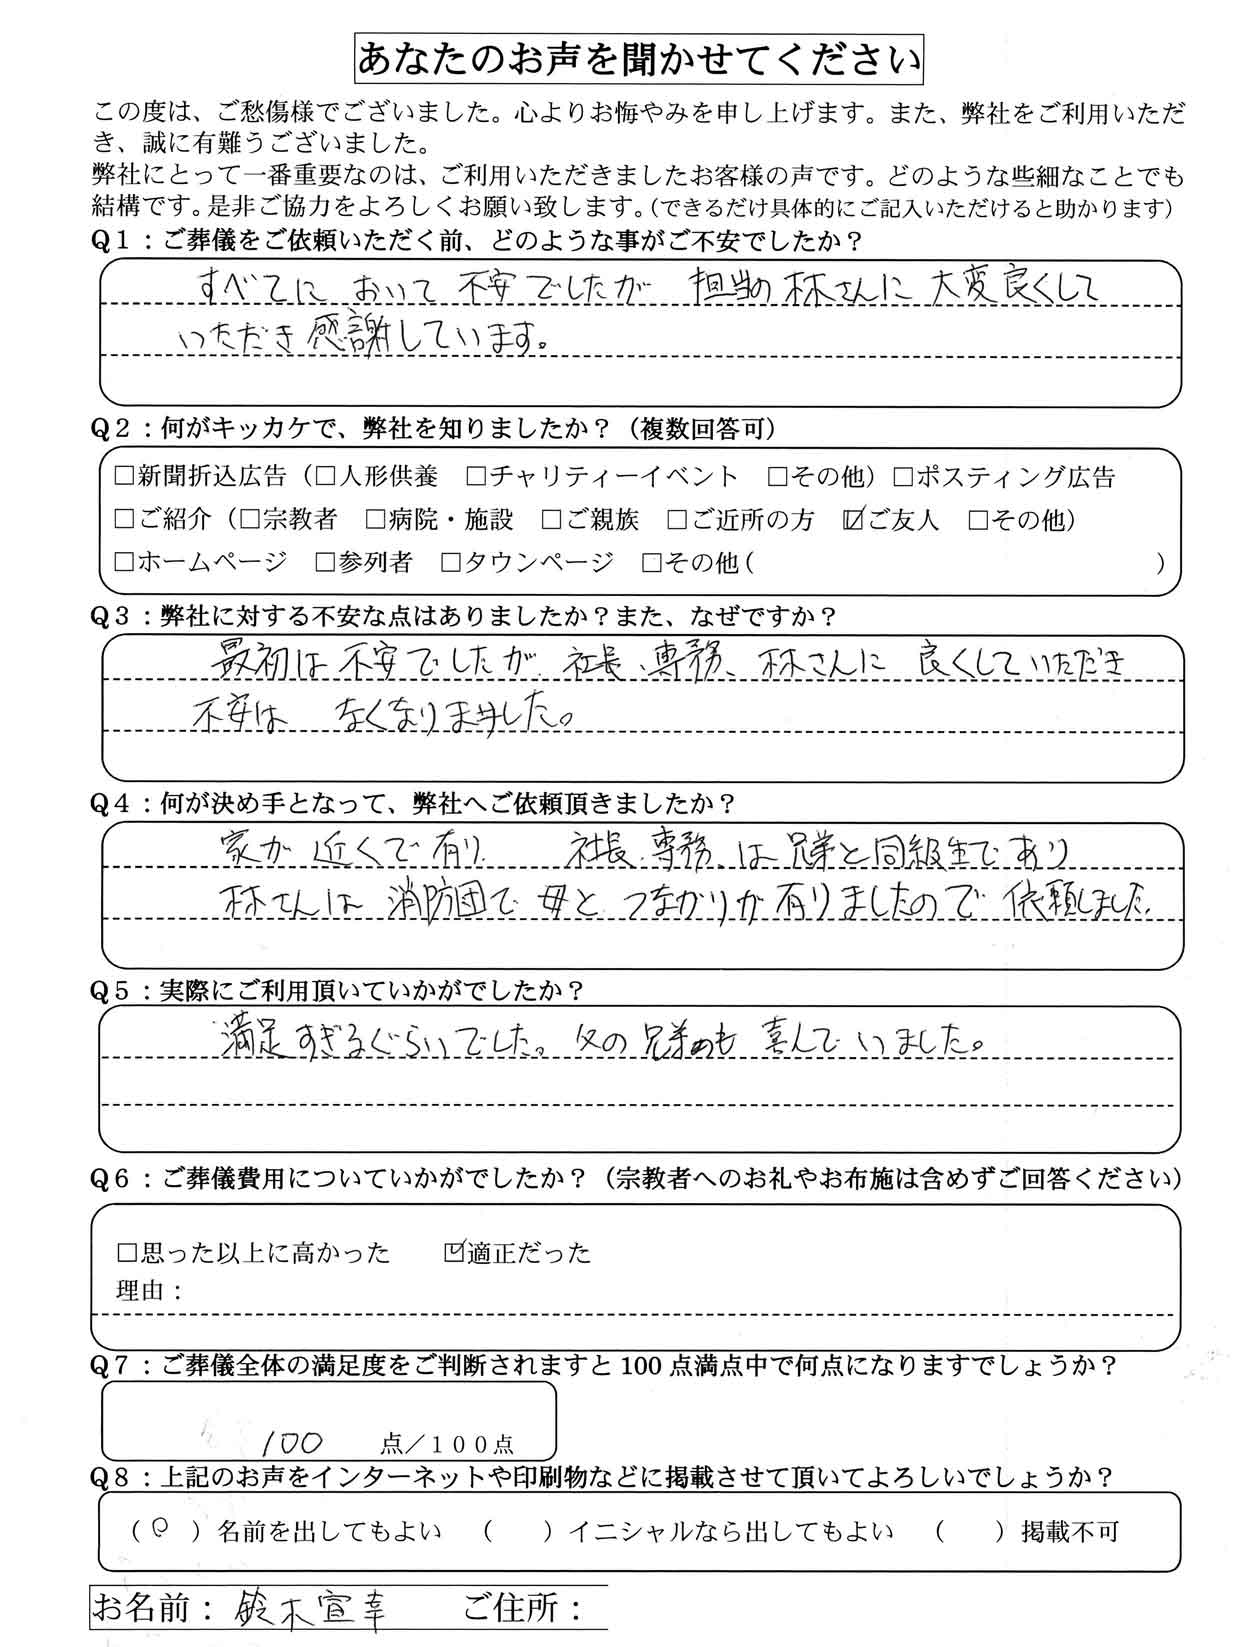 あなたのお声を聞かせてください
この度は、ご愁傷様でございました。心よりお悔やみを申し上げます。また、弊社をご利用いただ
き、誠に有難うございました。
弊社にとって一番重要なのは、ご利用いただきましたお客様の声です。どのような些細なことでも
結構です。是非ご協力をよろしくお願い致します。(できるだけ具体的にご記入いただけると助かります)
Q1：ご葬儀をご依頼いただく前、どのような事がご不安でしたか？
すべてに おいて 不安でしたが 担当の林さんに 大変良くして
いただき感謝しています。
Q2：何がキッカケで、弊社を知りましたか？（複数回答可）
□新聞折込広告（□人形供養 □チャリティーイベント □その他）□ポスティング広告
□ご紹介（□宗教者 □病院・施設 □ご親族 □ご近所の方 ☑ご友人 □その他）
□ホームページ □参列者 □タウンページ □その他( )
Q3：弊社に対する不安な点はありましたか？また、なぜですか？
最初は不安でしたが、社長、専務、林さんに 良くしていただき
不安は なくなりました。
Q4：何が決め手となって、弊社へご依頼頂きましたか？
家が近くで有り、社長、専務、は兄弟と同級生であり
林さんは 消防団で 母と つながりが有りましたので 依頼しました。
Q5：実際にご利用頂いていかがでしたか？
満足すぎるぐらいでした。父の兄弟も 喜んでいました。
Q6：ご葬儀費用についていかがでしたか？（宗教者へのお礼やお布施は含めずご回答ください）
□思った以上に高かった ☑適正だった
理由：
Q7：ご葬儀全体の満足度をご判断されますと100点満点中で何点になりますでしょうか？
100 点／１００点
Q8：上記のお声をインターネットや印刷物などに掲載させて頂いてよろしいでしょうか？
（○）名前を出してもよい （ ）イニシャルなら出してもよい （ ）掲載不可
お名前：鈴木宣幸 ご住所：